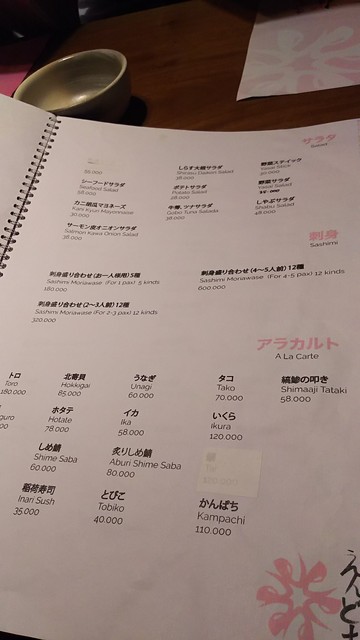 サラダ
Salad
55.000
しらす大根サラダ
Shirasu Daikon Salad
38.000
野菜スティック
Yasai Stick
シーフードサラダ
Seafood Salad
58.000
ポテトサラダ
Potato Salad
28.000
野菜サラダ
Yasai Salad
カニ胡瓜マヨネーズ
Kani Kyuri Mayonnaise
30.000
牛蒡、ツナサラダ
Gobo Tuna Salada
38.000
しゃぶサラダ
Shabu Salad
48.000
サーモン皮オニオンサラダ
Salmon Kawa Onion Salad
38.000
刺身
Sashimi
刺身盛り合わせ (お一人様用) 5種
Sashimi Moriawase (For 1 pax) 5 kinds
180.000
刺身盛り合わせ (4〜5人前) 12種
Sashimi Moriawase (For 4-5 pax) 12 kinds
600.000
刺身盛り合わせ (2〜3人前) 12種
Sashimi Moriawase (For 2-3 pax) 12 kinds
320.000
アラカルト
A La Carte
トロ
Toro
180.000
北寄貝
Hokkigai
85.000
うなぎ
Unagi
60.000
タコ
Tako
70.000
縞鯵の叩き
Shimaaji Tataki
58.000
guro
ホタテ
Hotate
78.000
イカ
Ika
58.000
いくら
Ikura
120.000
しめ鯖
Shime Saba
60.000
炙りしめ鯖
Aburi Shime Saba
80.000
稲荷寿司
Inari Sush
35.000
とびこ
Tobiko
40.000
かんぱち
Kampachi
110.000